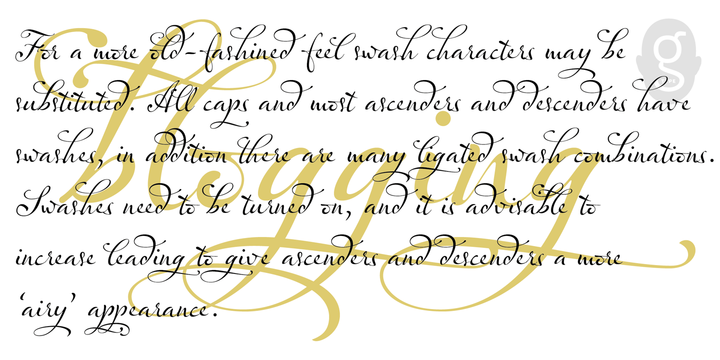 For a more old-fashined feel swash characters may be
substituted. All caps and most ascenders and descenders have
swashes, in addition there are many ligated swash combinations.
Swashes need to be turned on, and it is advisable to
increase leading to give ascenders and descenders a more
'airy' appearance.
blogging
g